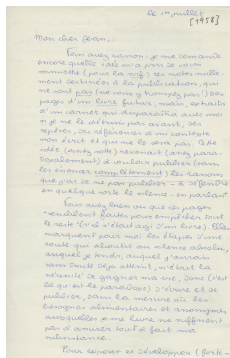 le 1er juillet
[1958]
Mon cher Jean,
Vous avez raison : je me demande
encore quelle idée m'a pris de vous
soumettre (pour la nrf) ces notes nulle-
ment destinées à la publication, qui
ne sont pas (ne vous y trompez pas !) des
pages d'un livre futur, mais, extraits
d'un carnet qui disparaîtra avec moi
si je ne le détruis pas avant, des
repères, des références à un contexte
non écrit et que ne le sera pas. Cette
idée (assez sotte) revenait (assez para-
doxalement) à vouloir publier (sans
les énoncer complètement) les raisons
que j'ai de ne pas publier – à défendre
en quelque sorte le silence – en parlant.
Vous avez bien vu que ces pages
semblent faites pour empêcher tout
le reste (s'il s'était agi d'un livre). Elles
marquent pour moi les étapes d'une
route qui aboutit au silence absolu,
auquel je tends, auquel j'aurais
sans doute déjà atteint, n'était la
nécessité de gagner ma vie, donc (c'est
là qu'est le paradoxe) d'écrire et de
publier, dans la mesure où les
besognes alimentaires et anonymes
auxquelles je me livre ne suffisent
pas à assurer tout à fait ma
subsistance.
Pour exposer et développer (forte-